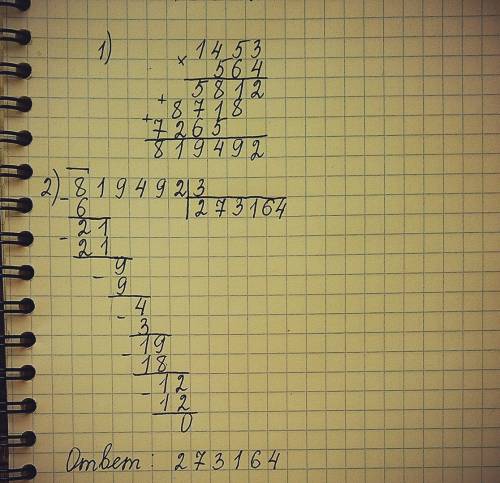 1) × 1453
564
5812
+ 8718
+ 7265
819492
2) 819492 | 3
- 6 | 273164
21
- 21
9
- 9
4
- 3
19
- 18
12
- 12
0
Ответ: 273164